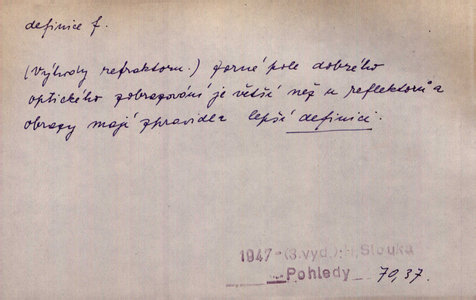 definice f.
(Výhody refraktoru.) Zorné pole dobrého
optického zobrazování je větší než u reflektorů a
obrazy mají zpravidla lepší definici.
1947 (3.vyd.) H. Slouka
Pohledy 70,37.